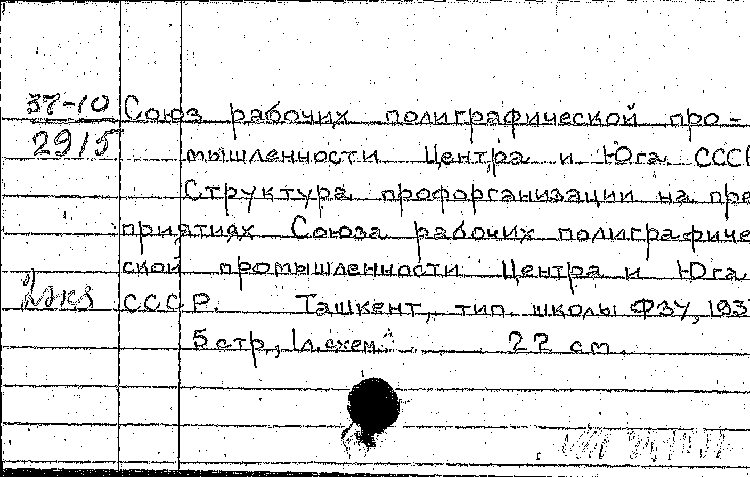 37-10 Союз рабочих полиграфической про-
2915 мышленности Центра и Юга СССР
Структура профорганизации на пре
приятиях Союза рабочих полиграфиче
ской промышленности Центра и Юга
2 экз СССР. Ташкент, тип. школы ФЗУ, 193
5 стр., 1 л. схем. 22 см.